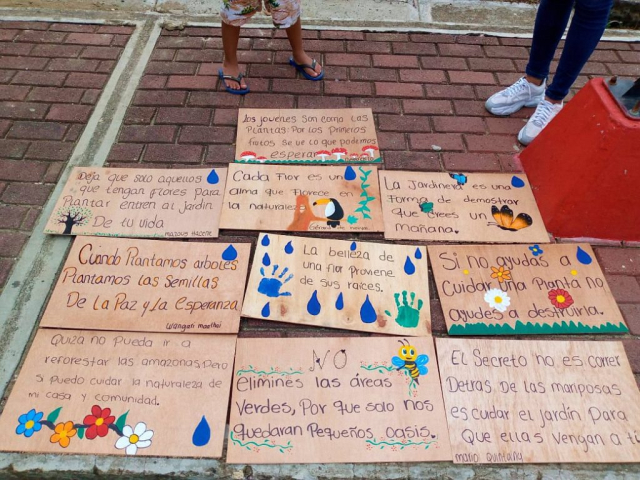 Los jovenes son como las
Plantas: Por los Primeros
frutos se ve lo que podemos
esperar
Deja que solo aquellos
que tengan flores Para
Plantar entren al jardín
De tu vida
Cada Flor es un
alma que Florece en
la naturaleza
La Jardineria es una
Forma de demostrar
que crees en un
Mañana.
Cuando Plantamos arboles
Plantamos las semillas
De la Paz y la esperanza
Wangari Maathai
La belleza de
una flor proviene
de sus raíces.
Si no ayudas a
Cuidar una Planta no
ayudes a destruirla.
Quiza no pueda ir a
reforestar las amazonas, Pero
si puedo cuidar la naturaleza de
mi casa y comunidad.
NO
elimines las áreas
Verdes, Por que solo nos
quedaran Pequeños oasis.
El Secreto no es correr
Detras De las mariposas
es cuidar el jardín Para
Que ellas vengan a ti
Mario Quintana